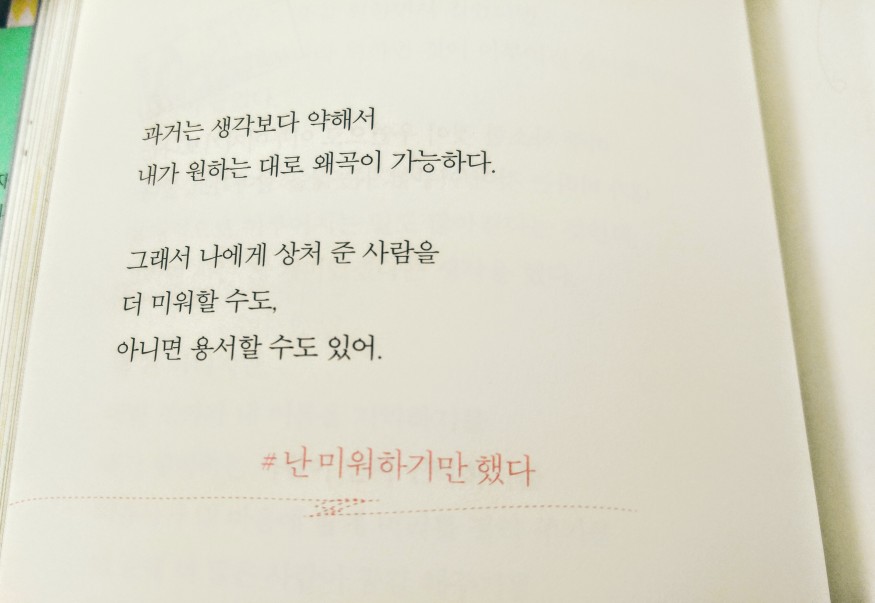 과거는 생각보다 약해서
내가 원하는 대로 왜곡이 가능하다.
그래서 나에게 상처 준 사람을
더 미워할 수도,
아니면 용서할 수도 있어.
# 난 미워하기만 했다